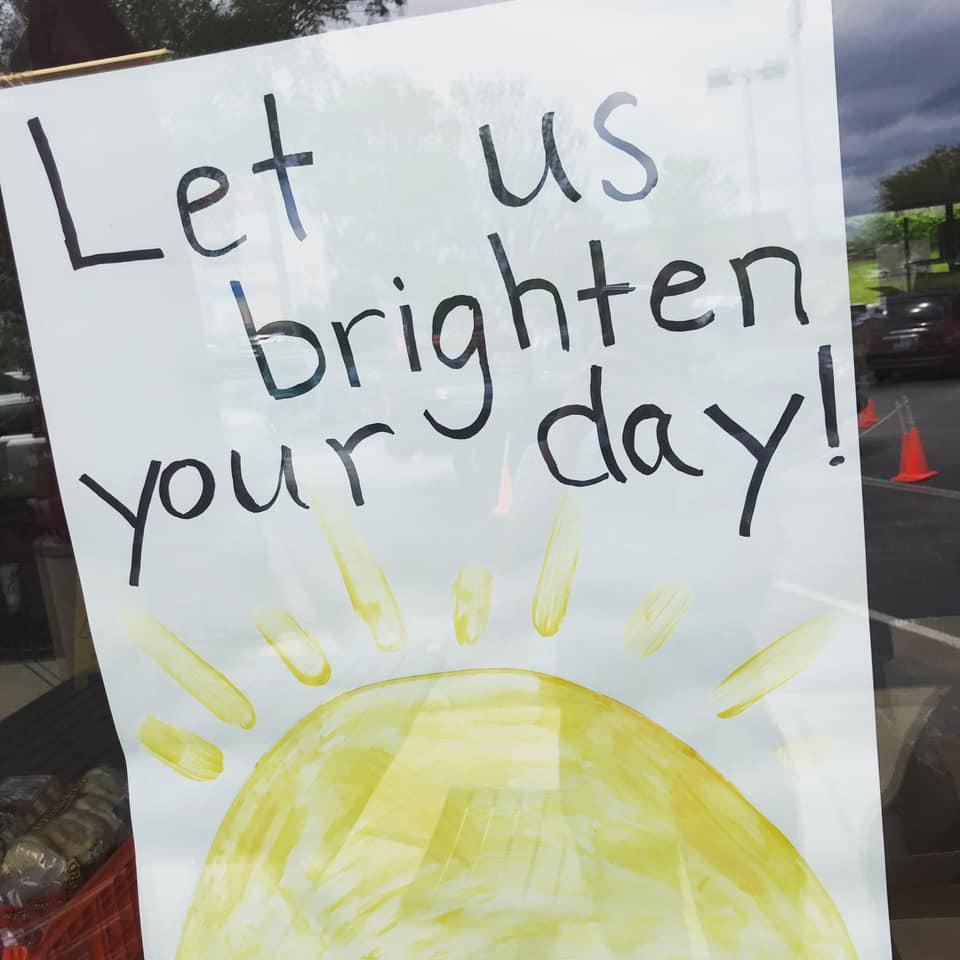 Let us
brighten
your day!